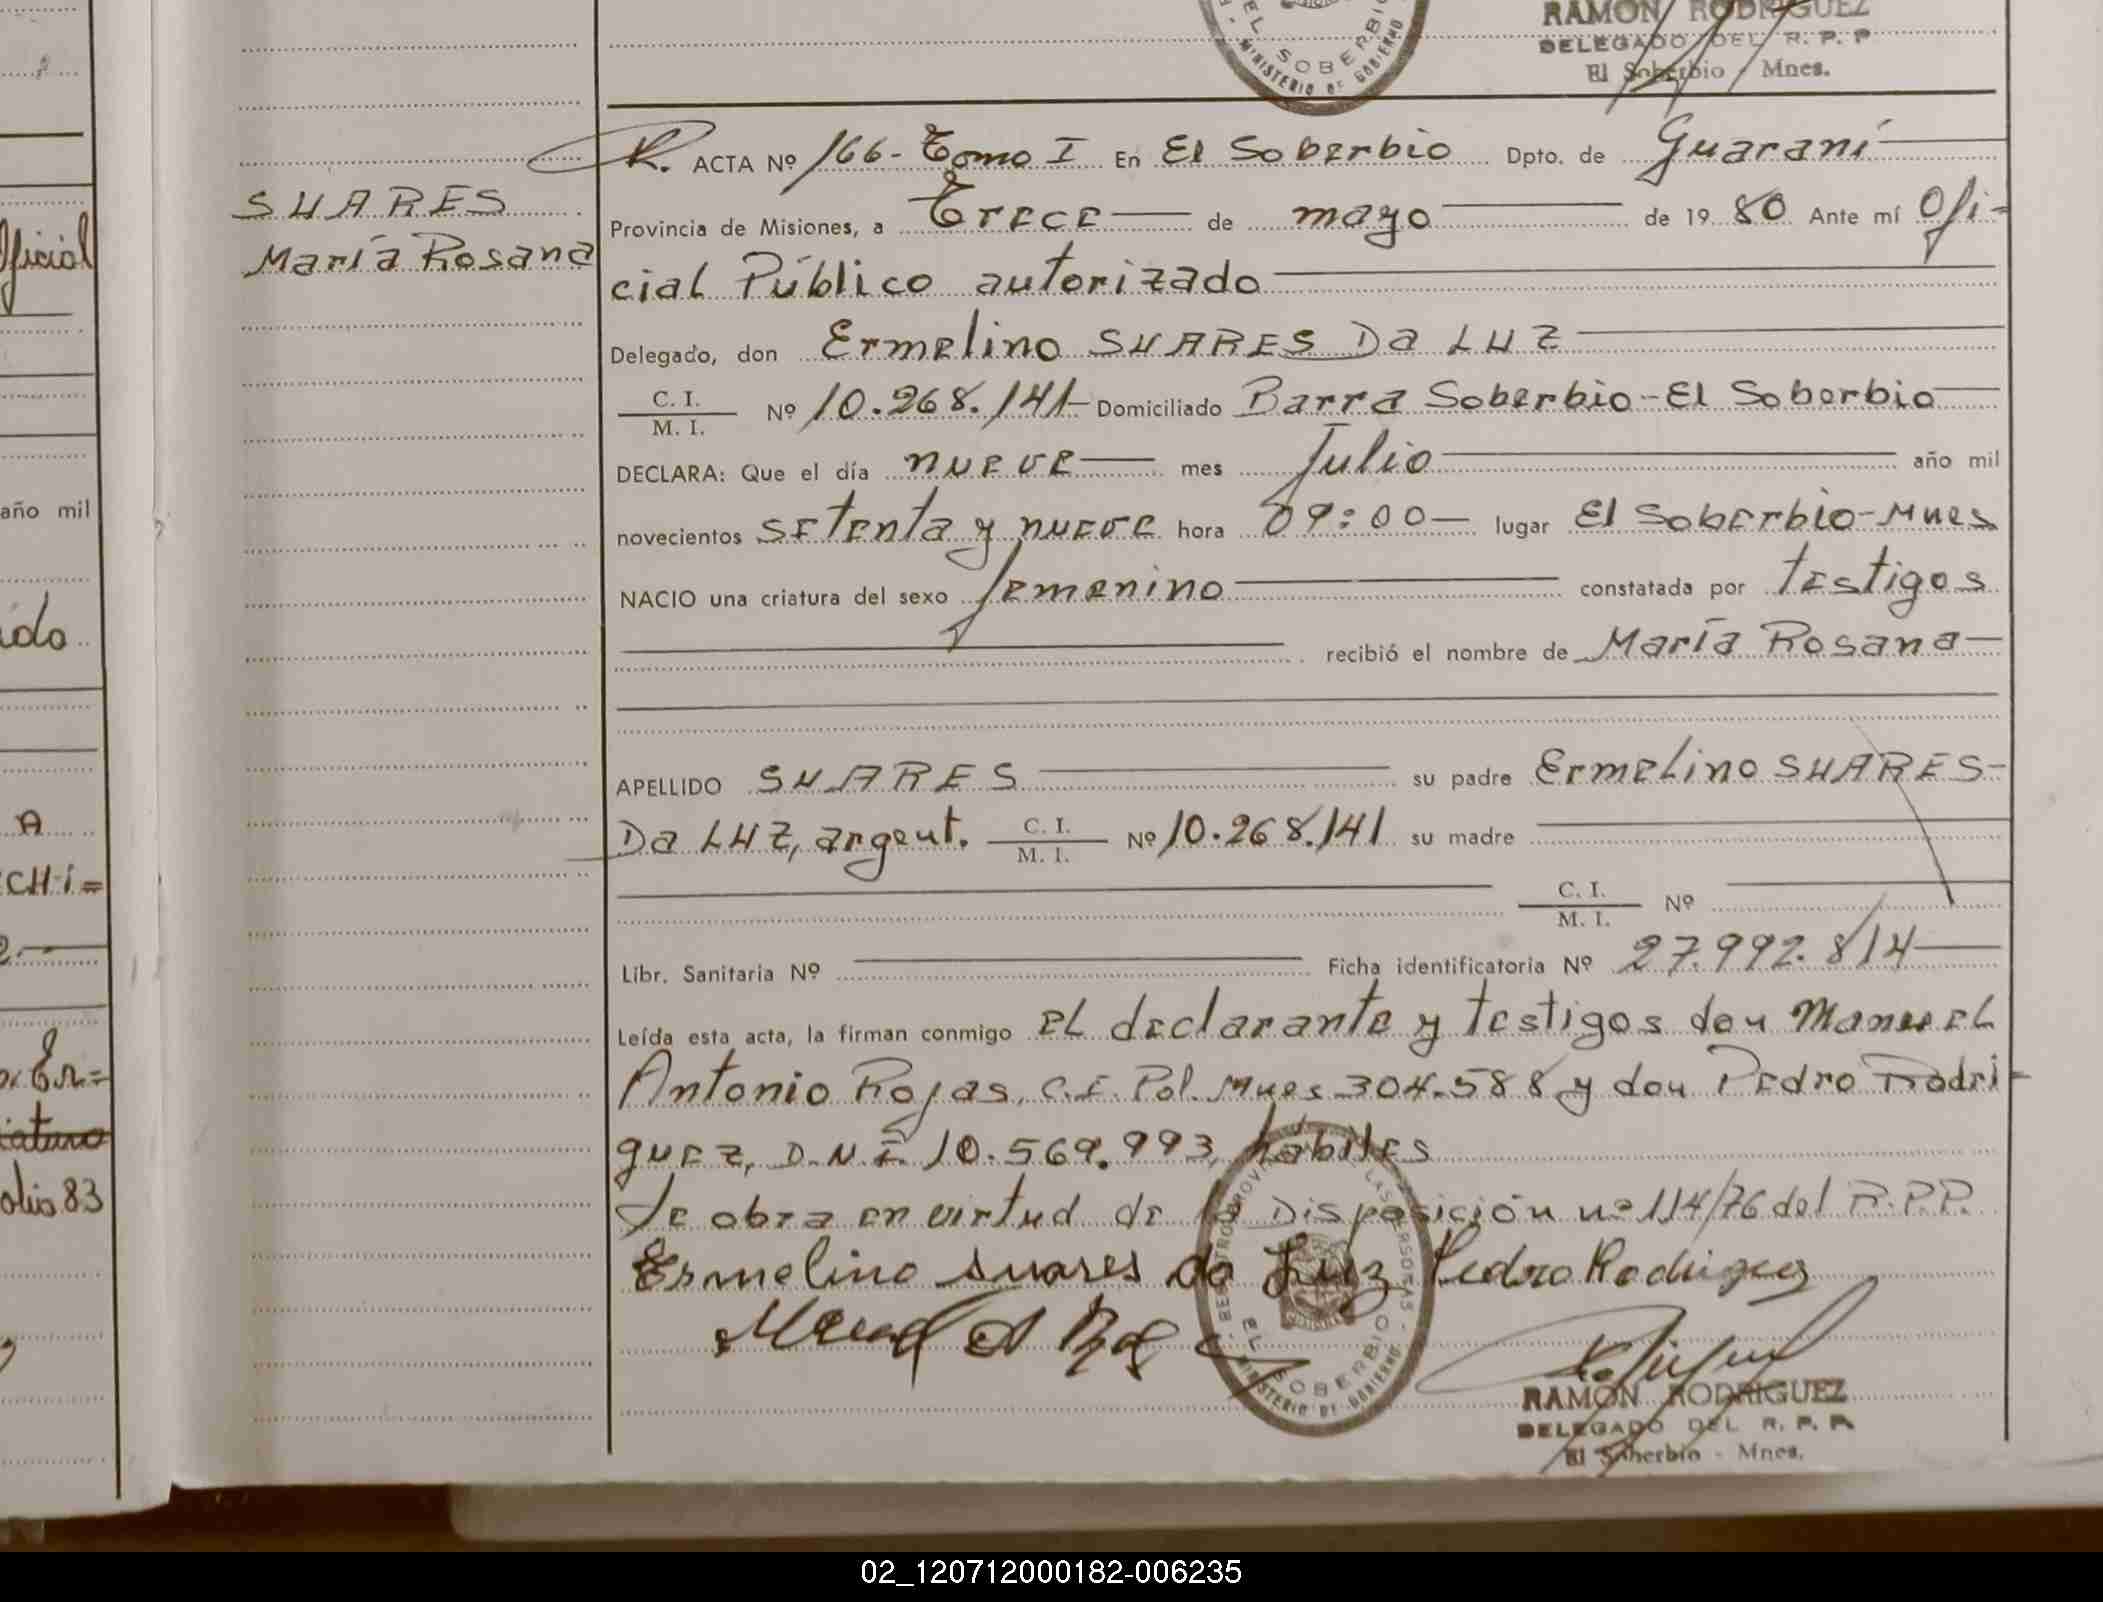 RAMÓN RODRIGUEZ
DELEGADO DEL R. P. P
El Soberbio - Mnes.
EL SOBERBIO
MINISTERIO DE GOBIERNO
R. ACTA Nº 166- Tomo I En El Soberbio Dpto. de Guaraní
SUARES
María Rosana
Provincia de Misiones, a Trece de mayo de 1980 Ante mí Ofi-
cial Público autorizado
Delegado, don Ermelino SUARES Da LUZ
C. I.
M. I. Nº 10.268.141- Domiciliado Barra Soberbio-El Soberbio
DECLARA: Que el día nueve mes Julio año mil
novecientos setenta y nueve hora 09:00 lugar El Soberbio-Mnes
NACIO una criatura del sexo femenino constatada por testigos
recibió el nombre de María Rosana
APELLIDO SUARES su padre Ermelino SUARES-
Da LUZ, argent. C. I.
M. I. Nº 10.268.141 su madre
C. I.
M. I. Nº
Libr. Sanitaria Nº Ficha identificatoria Nº 27.992.814
Leída esta acta, la firman conmigo el declarante y testigos don Manuel
Antonio Rojas, C.I. Pol. Mnes 304.588 y don Pedro Rodri-
guez, D.N.I. 10.569.993, hábiles
Se obra en virtud de la Disposición nº 114/76 del R.P.P.
Ermelino Suares da Luz Pedro Rodriguez
EL SOBERBIO
MINISTERIO DE GOBIERNO
RAMÓN RODRIGUEZ
DELEGADO DEL R. P. P.
El Soberbio - Mnes.
oficial
año mil
ido
A
CHI=
olio 83
02_120712000182-006235